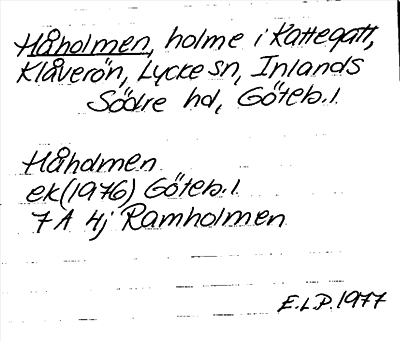 Håholmen, holme i Kattegatt,
Klåverön, Lycke sn, Inlands
Södre hd, Göteb. l.
Håholmen
ek (1976) Göteb. l.
7 A 4j Ramholmen
E.L.P. 1977